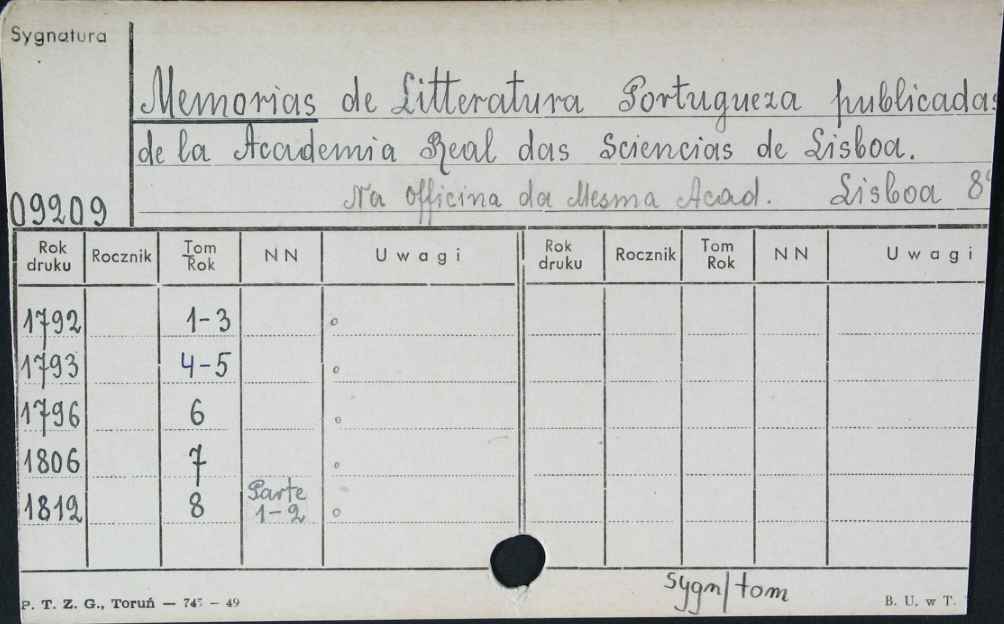 Sygnatura
Memorias de Litteratura Portugueza publicadas
de la Academia Real das Sciencias de Lisboa.
09209 Na officina da Mesma Acad. Lisboa 8º
Rok druku Rocznik Tom Rok NN Uwagi Rok druku Rocznik Tom Rok NN Uwagi
1792 1-3 o
1793 4-5 o
1796 6 o
1806 7 o
1812 8 Parte 1-2 o
sygn/tom
P. T. Z. G., Toruń — 745 — 49 B. U. w T.